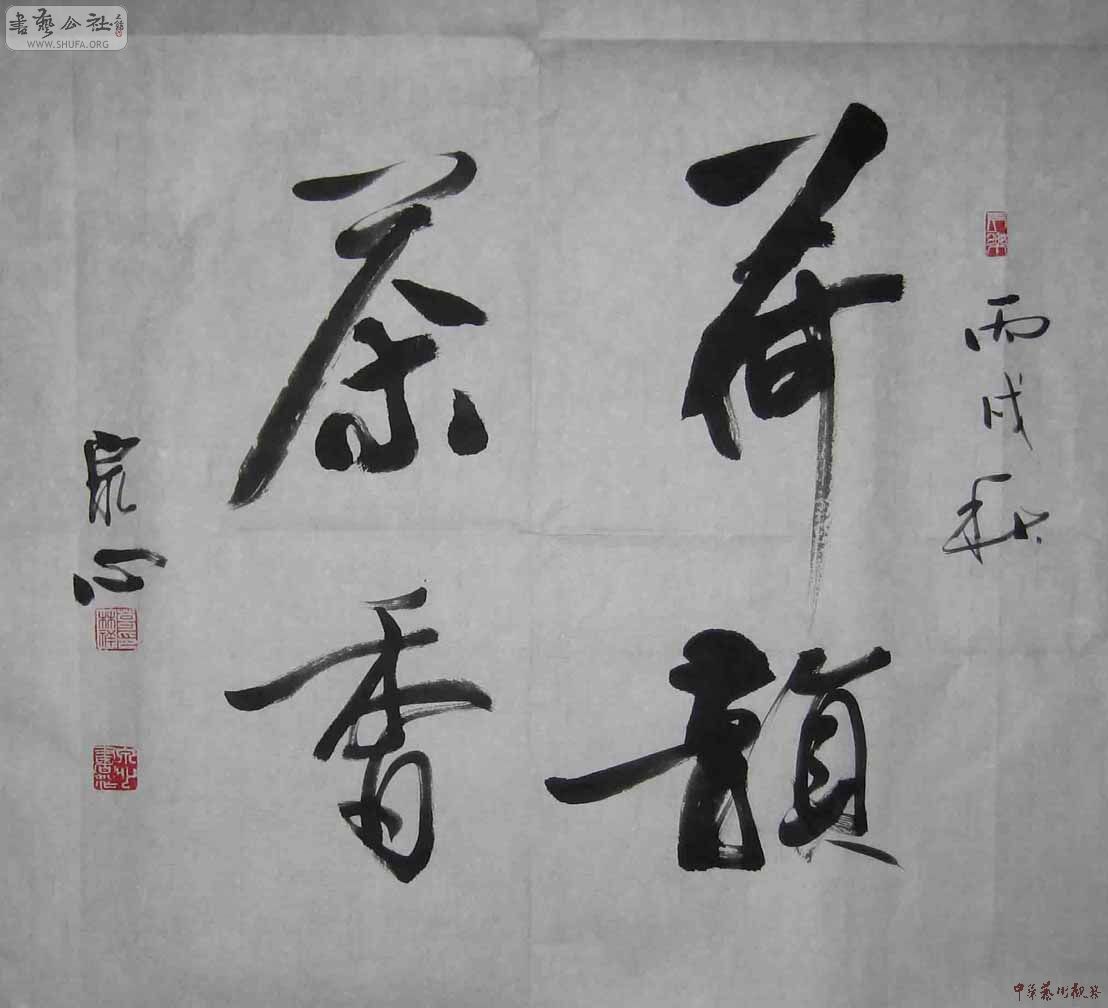 書藝公社
WWW.SHUFA.ORG
丙戌秋
荷韻
茶香
泉心